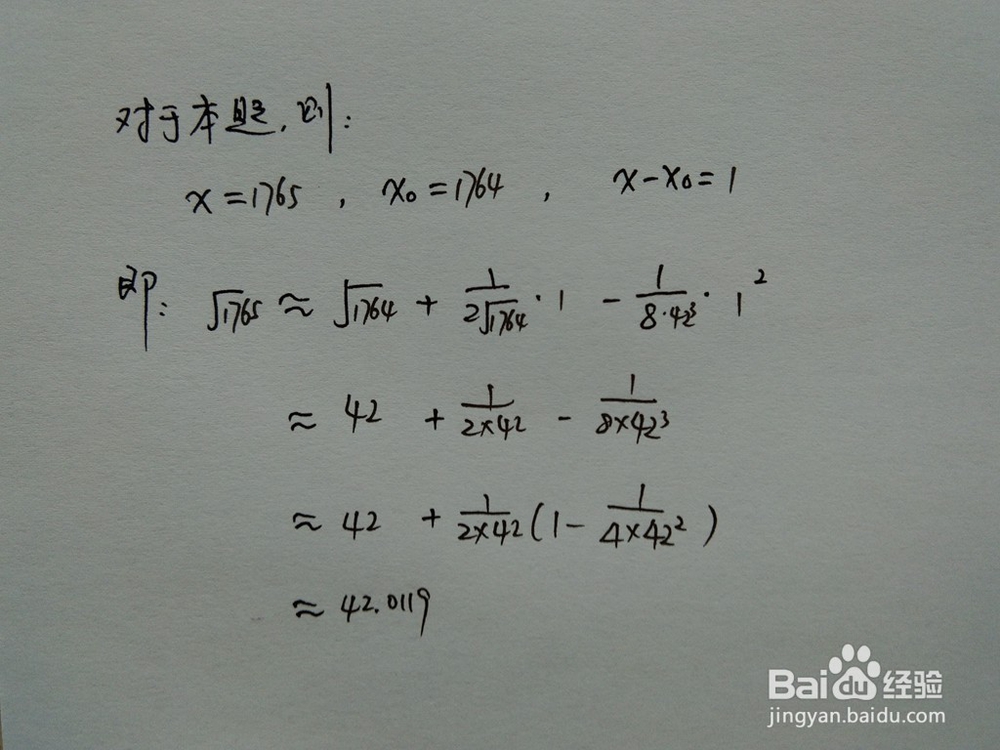 对于本题，则：
x=1765，x₀=1764，x-x₀=1
即：√1765≈√1764+1/(2√1764)·1-1/(8·42³)·1²
≈42+1/(2×42)-1/(8×42³)
≈42+1/(2×42)(1-1/(4×42²))
≈42.0119
Baidu经验
jingyan.baidu.com